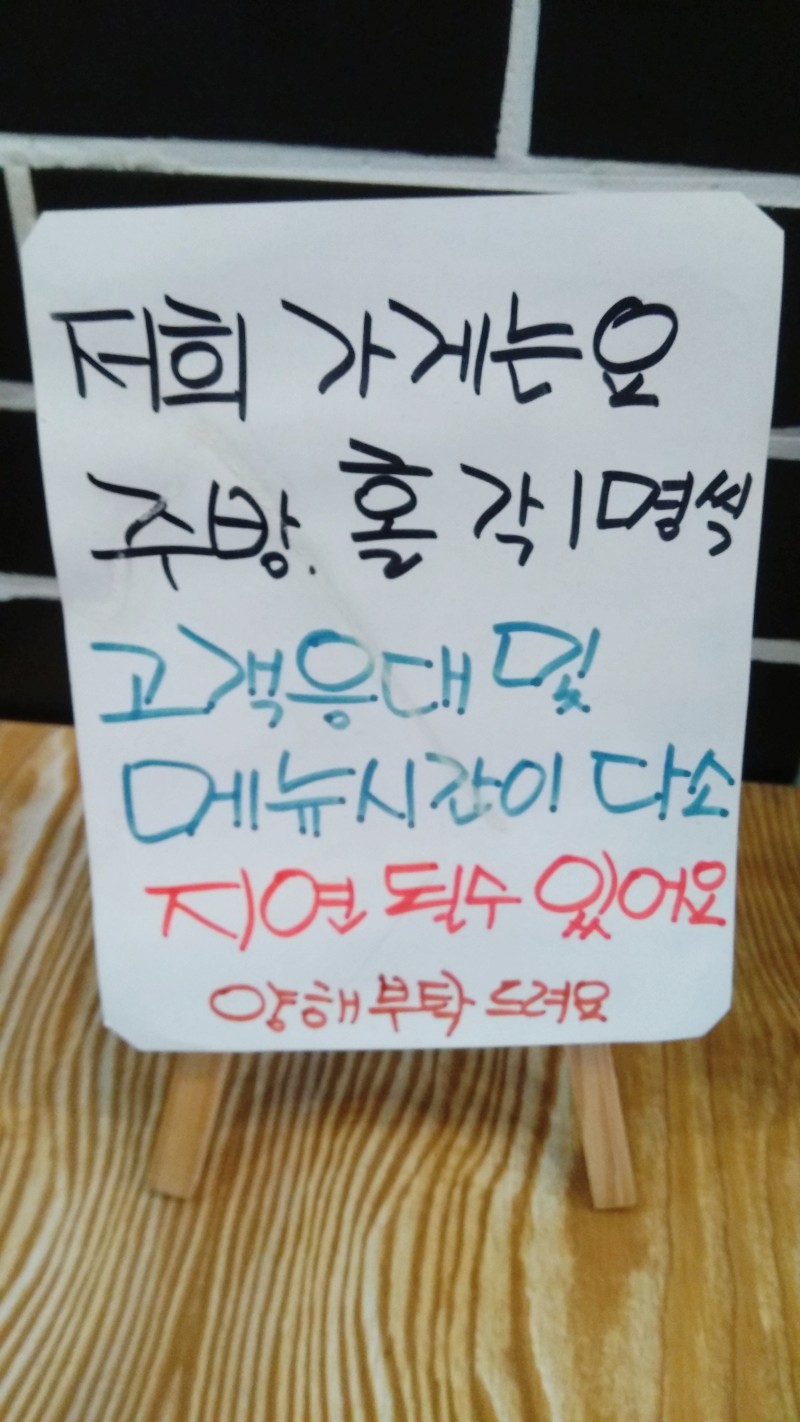 저희 가게는요
주방. 홀 각 1명씩
고객응대 및
메뉴시간이 다소
지연 될수 있어요
양해 부탁 드려요